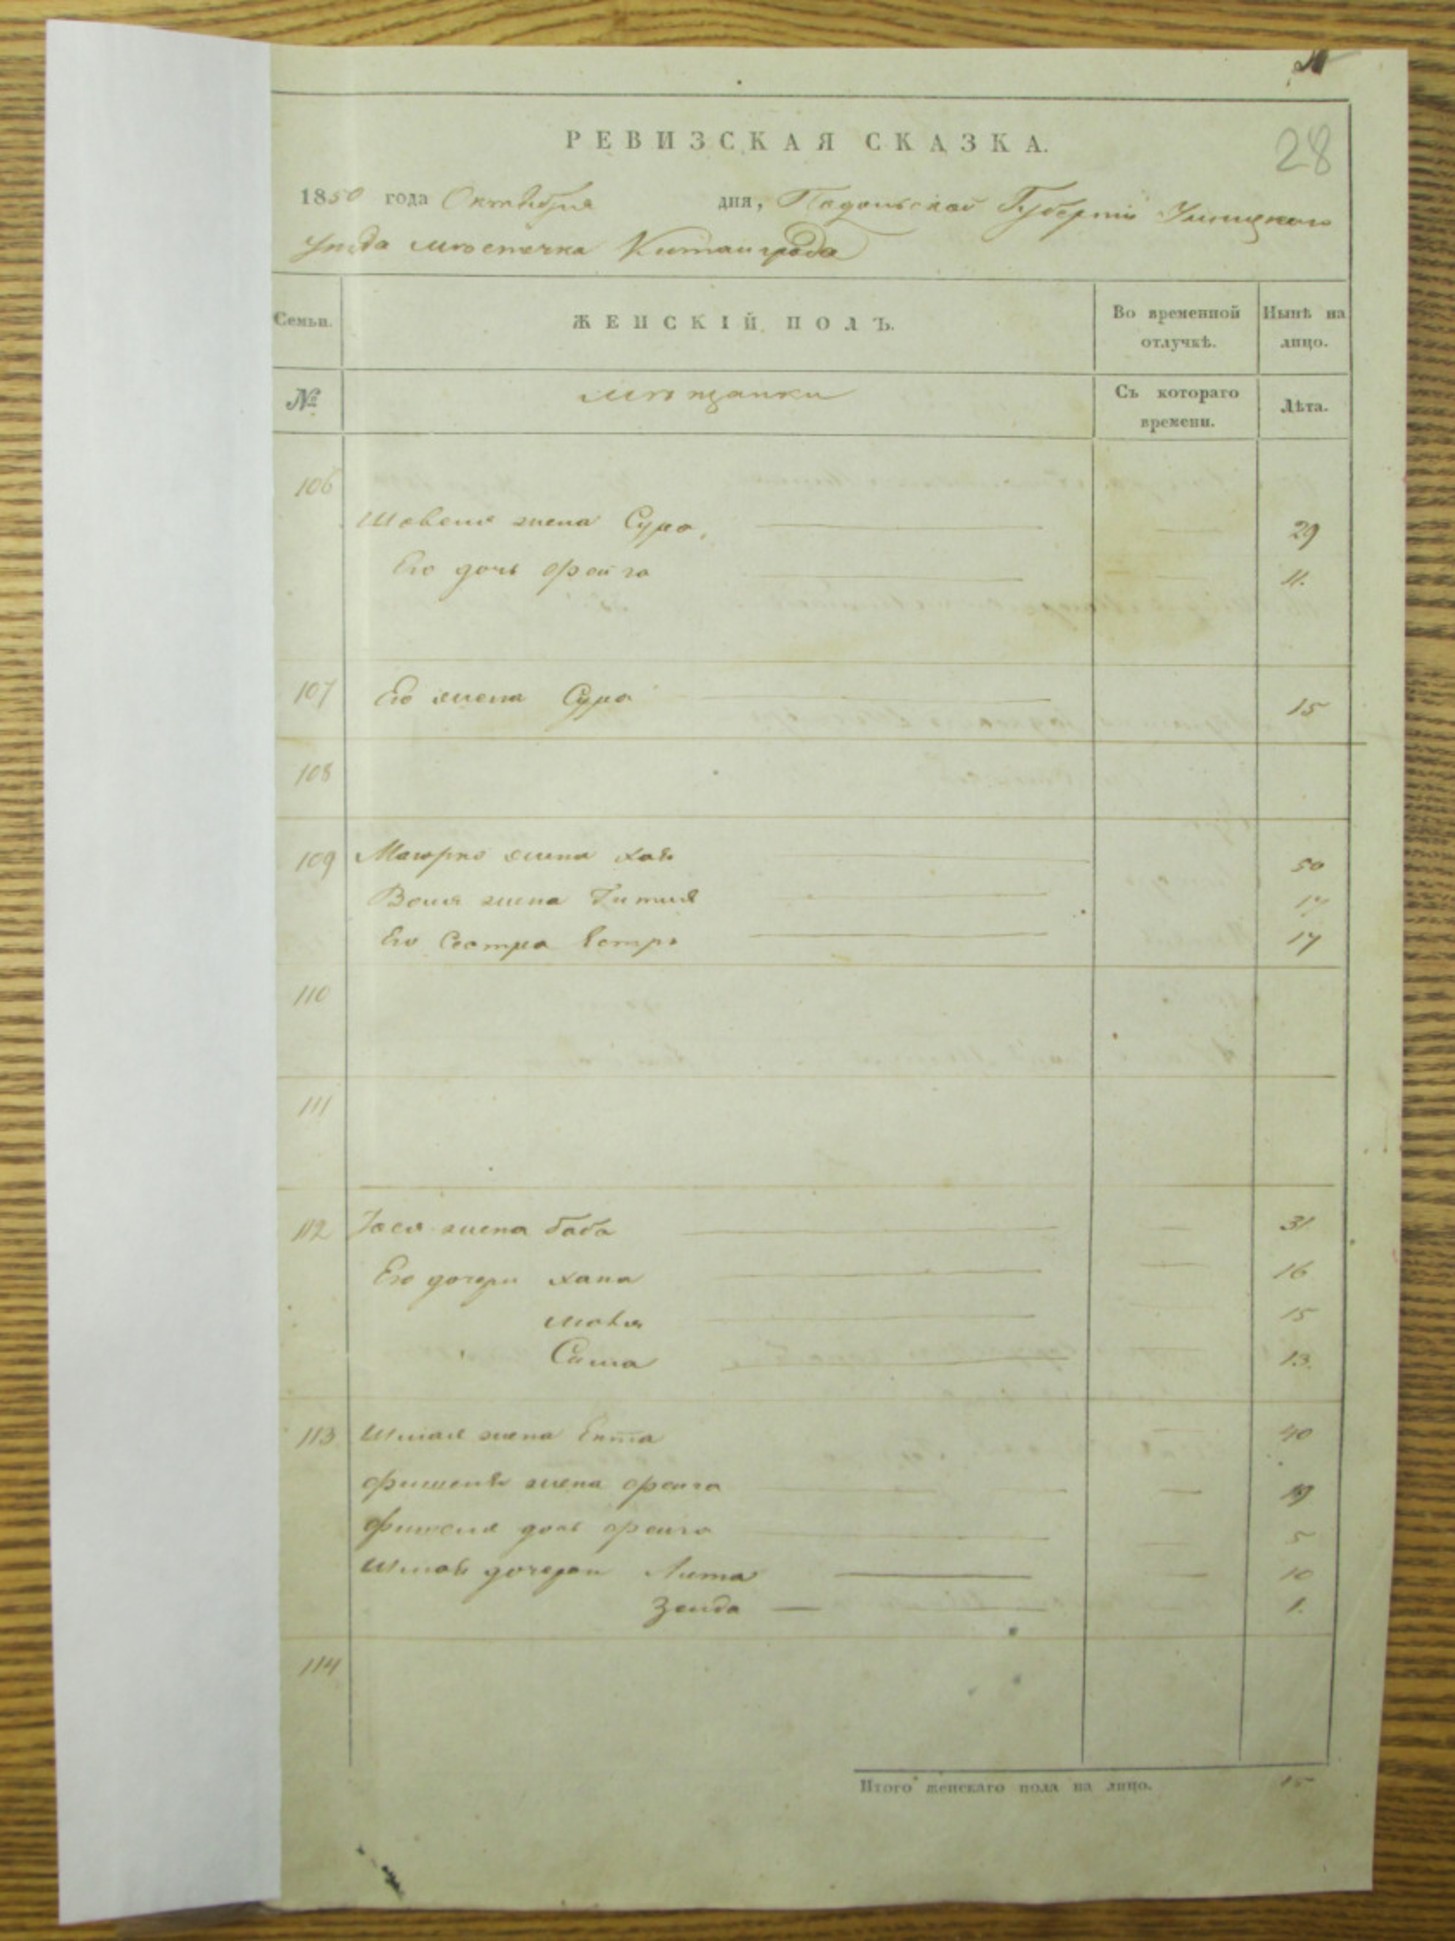 28
РЕВИЗСКАЯ СКАЗКА.
1850 года Октября дня, Подольской Губерніи Ушицкого
уезда мѣстечка Китайгрода
Семьи. ЖЕНСКІЙ ПОЛЪ. Во временной отлучкѣ. Нынѣ на лицо.
№ мѣщанки Съ котораго времени. Лѣта.
106
жена Сура 29
Его дочь Фейга 11.
107 Его жена Сура 15
108
109 жена Хая 50
жена
Его Сестра 17
110
111
112 жена Баба 31
Его дочери Хана 16
15
Сима 13.
113 Шмая жена Ента 40
Фишеля жена Фейга 19
Фишеля дочь Фейга 5
Шмаи дочери 10
Зенда 1.
114
Итого женскаго пола на лицо. 15